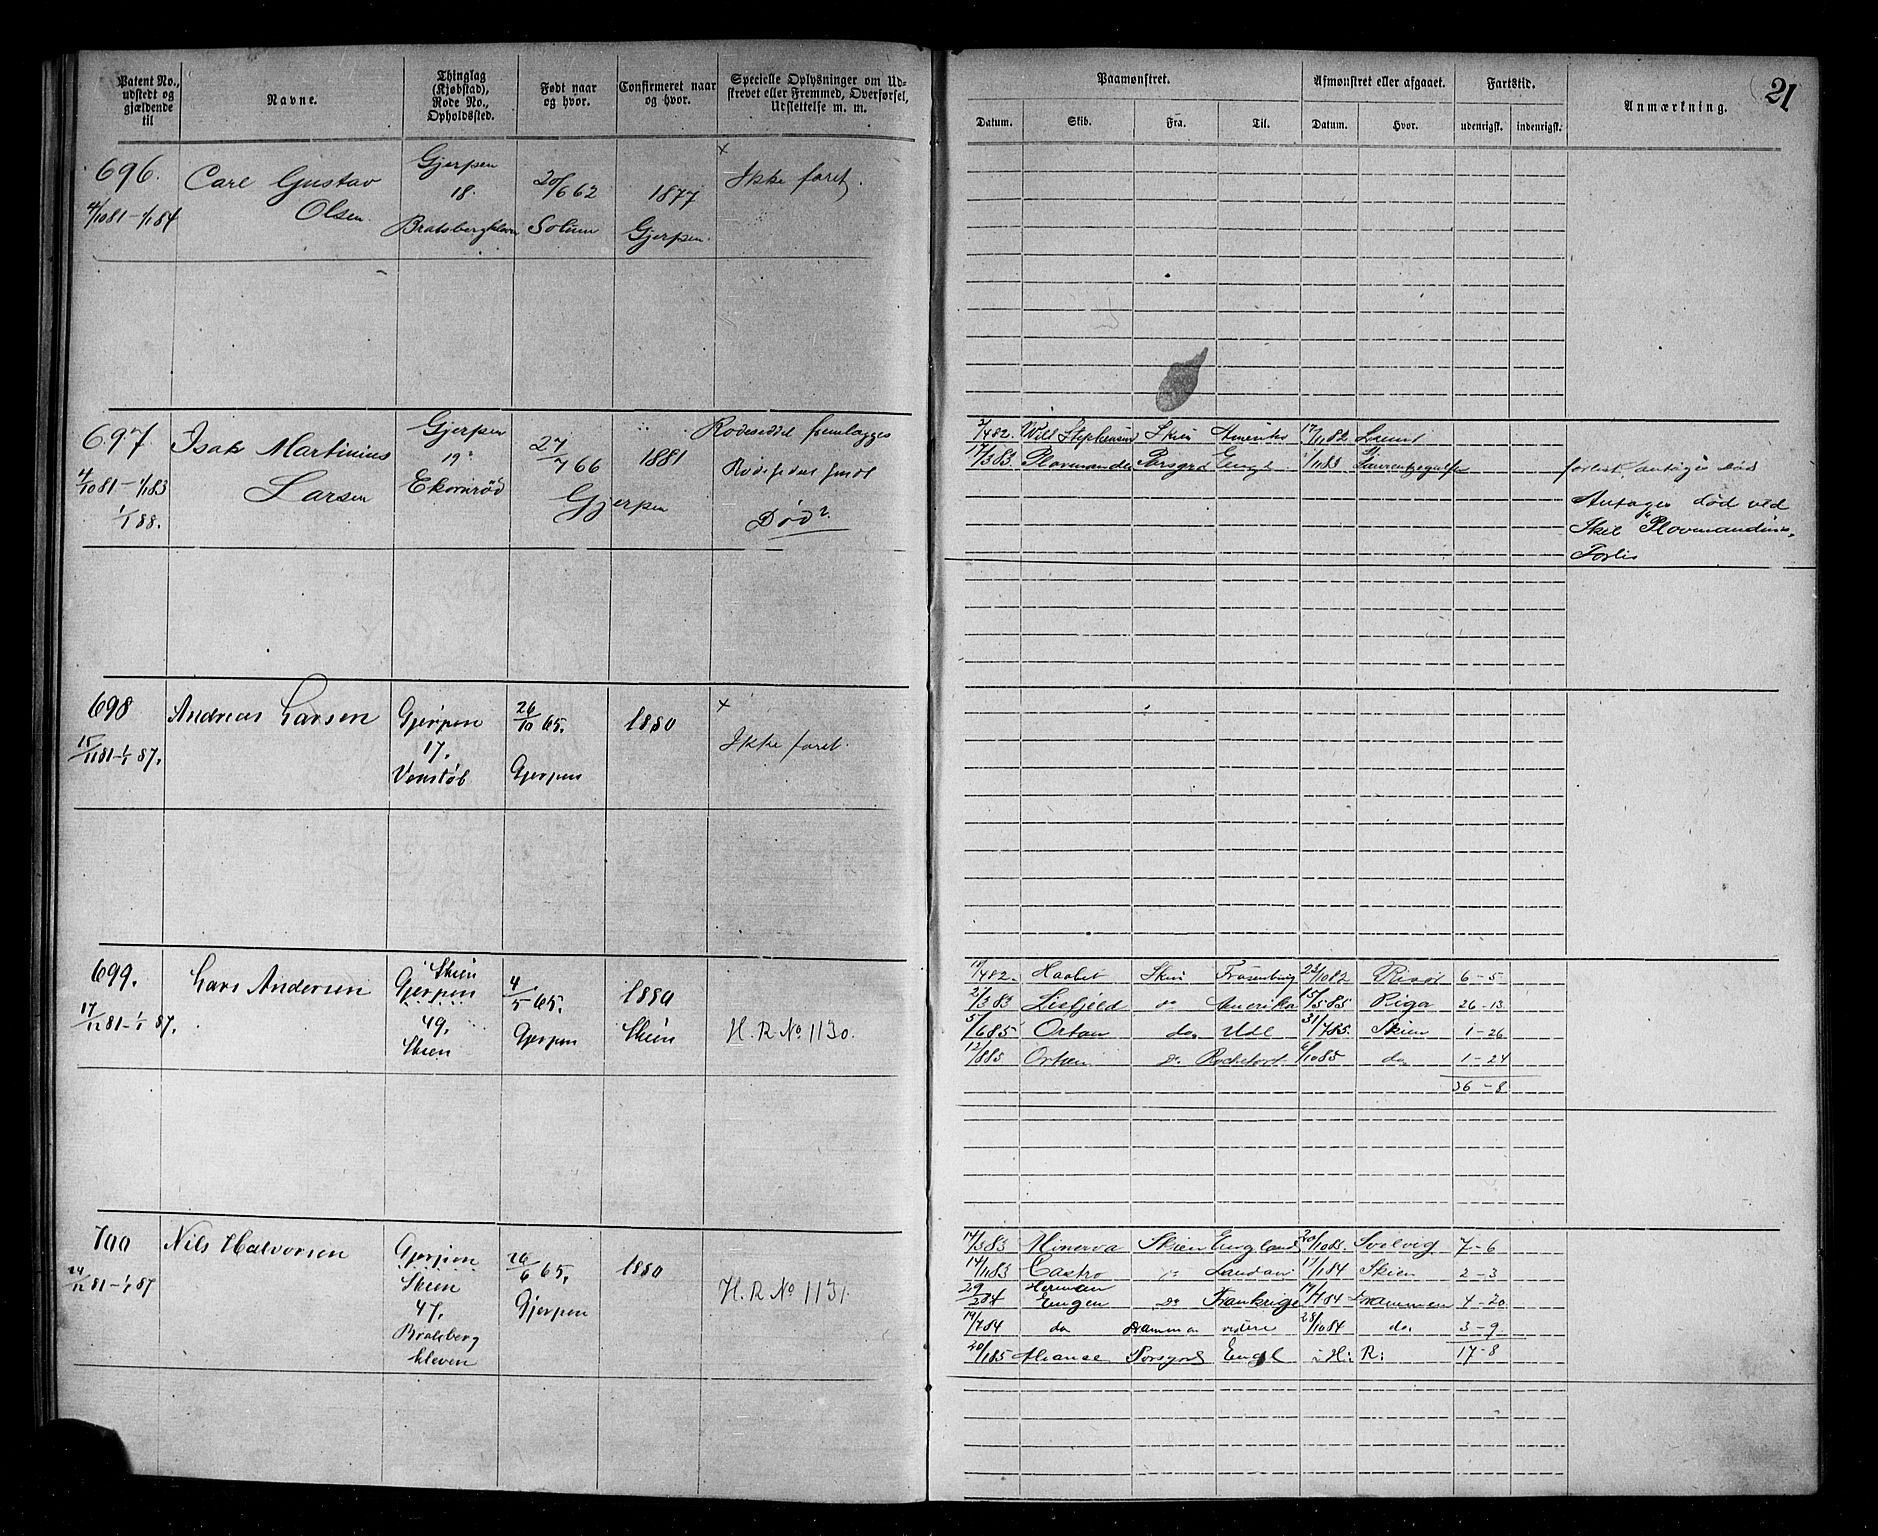 21
Patent No., udstedt og gjældende til
Navne.
Thinglag (Kjøbstad), Rode No., Opholdssted.
Født naar og hvor.
Confirmeret naar og hvor.
Specielle Oplysninger om Udstrevet eller Fremmed, Overførsel, Udslettelse m. m.
Paamønstret.
Afmønstret eller afgaaet.
Fartstid.
Anmærkning.
Datum.
Skib.
Fra.
Til.
Datum.
Hvor.
udenrigst.
indenrigst.
696. Carl Gustav Gjerpen 20/6 62 1877 Ikke faret.
4/10 81 – 1/1 84 Olsen. 18. Solum Gjerpen.
Bratsbergkleven
697 Isak Martinius Gjerpen 27/7 66 1881 Rodeseddel fremlagges
4/10 81 – 1/1 83 Larsen 19 Gjerpen
1/1 88. Ekornrød Død?
3/4 82. Will Stephenson Skien Amerika 17/11 82
17/3 83 Plovmanden Porsgrd Engl 1/11 83 forlist, antages død
Antages død ved
Skib "Plovmandens"
Forlis
698 Andreas Larsen Gjerpen 26/10 65. 1880 Ikke faret.
15/11 81 – 1/1 87. 17. Gjerpen
Venstøb
699. Lars Andersen Skien 4/5 65. 1880
17/12 81 – 1/1 87. Gjerpen Gjerpen Skien H. R. No. 1130.
49.
Skien
19/4 82. Haabet Skien 23/10 82 6 – 5
21/3 83 Lisfjeld do Amerika 15/5 85 Riga 26 – 13
5/6 85 Ørtan do Udl 31/7 85. Skien 1 – 26
12/8 85 Ørtan do Rochefort 6/10 85 do 1 – 24
36 – 8
700 Nils Halvorsen Gjerpen 26/6 65. 1880
24/12 81 – 1/1 87 Skien Gjerpen H. R. No 1131.
47.
Bratsberg
kleven
14/3 83 Minerva Skien England 20/10 83. Svelvig 7 – 6
14/11 83 Castro do London 17/1 84 Skien 2 – 3
29/2 84 Herman Engen do Frankrige 19/7 84 Drammen 4 – 20
19/7 84 do Drammen videre 28/10 84 do. 3 – 9
20/1 85 Alianse Porsgrd Engl i H: R: 17 – 8